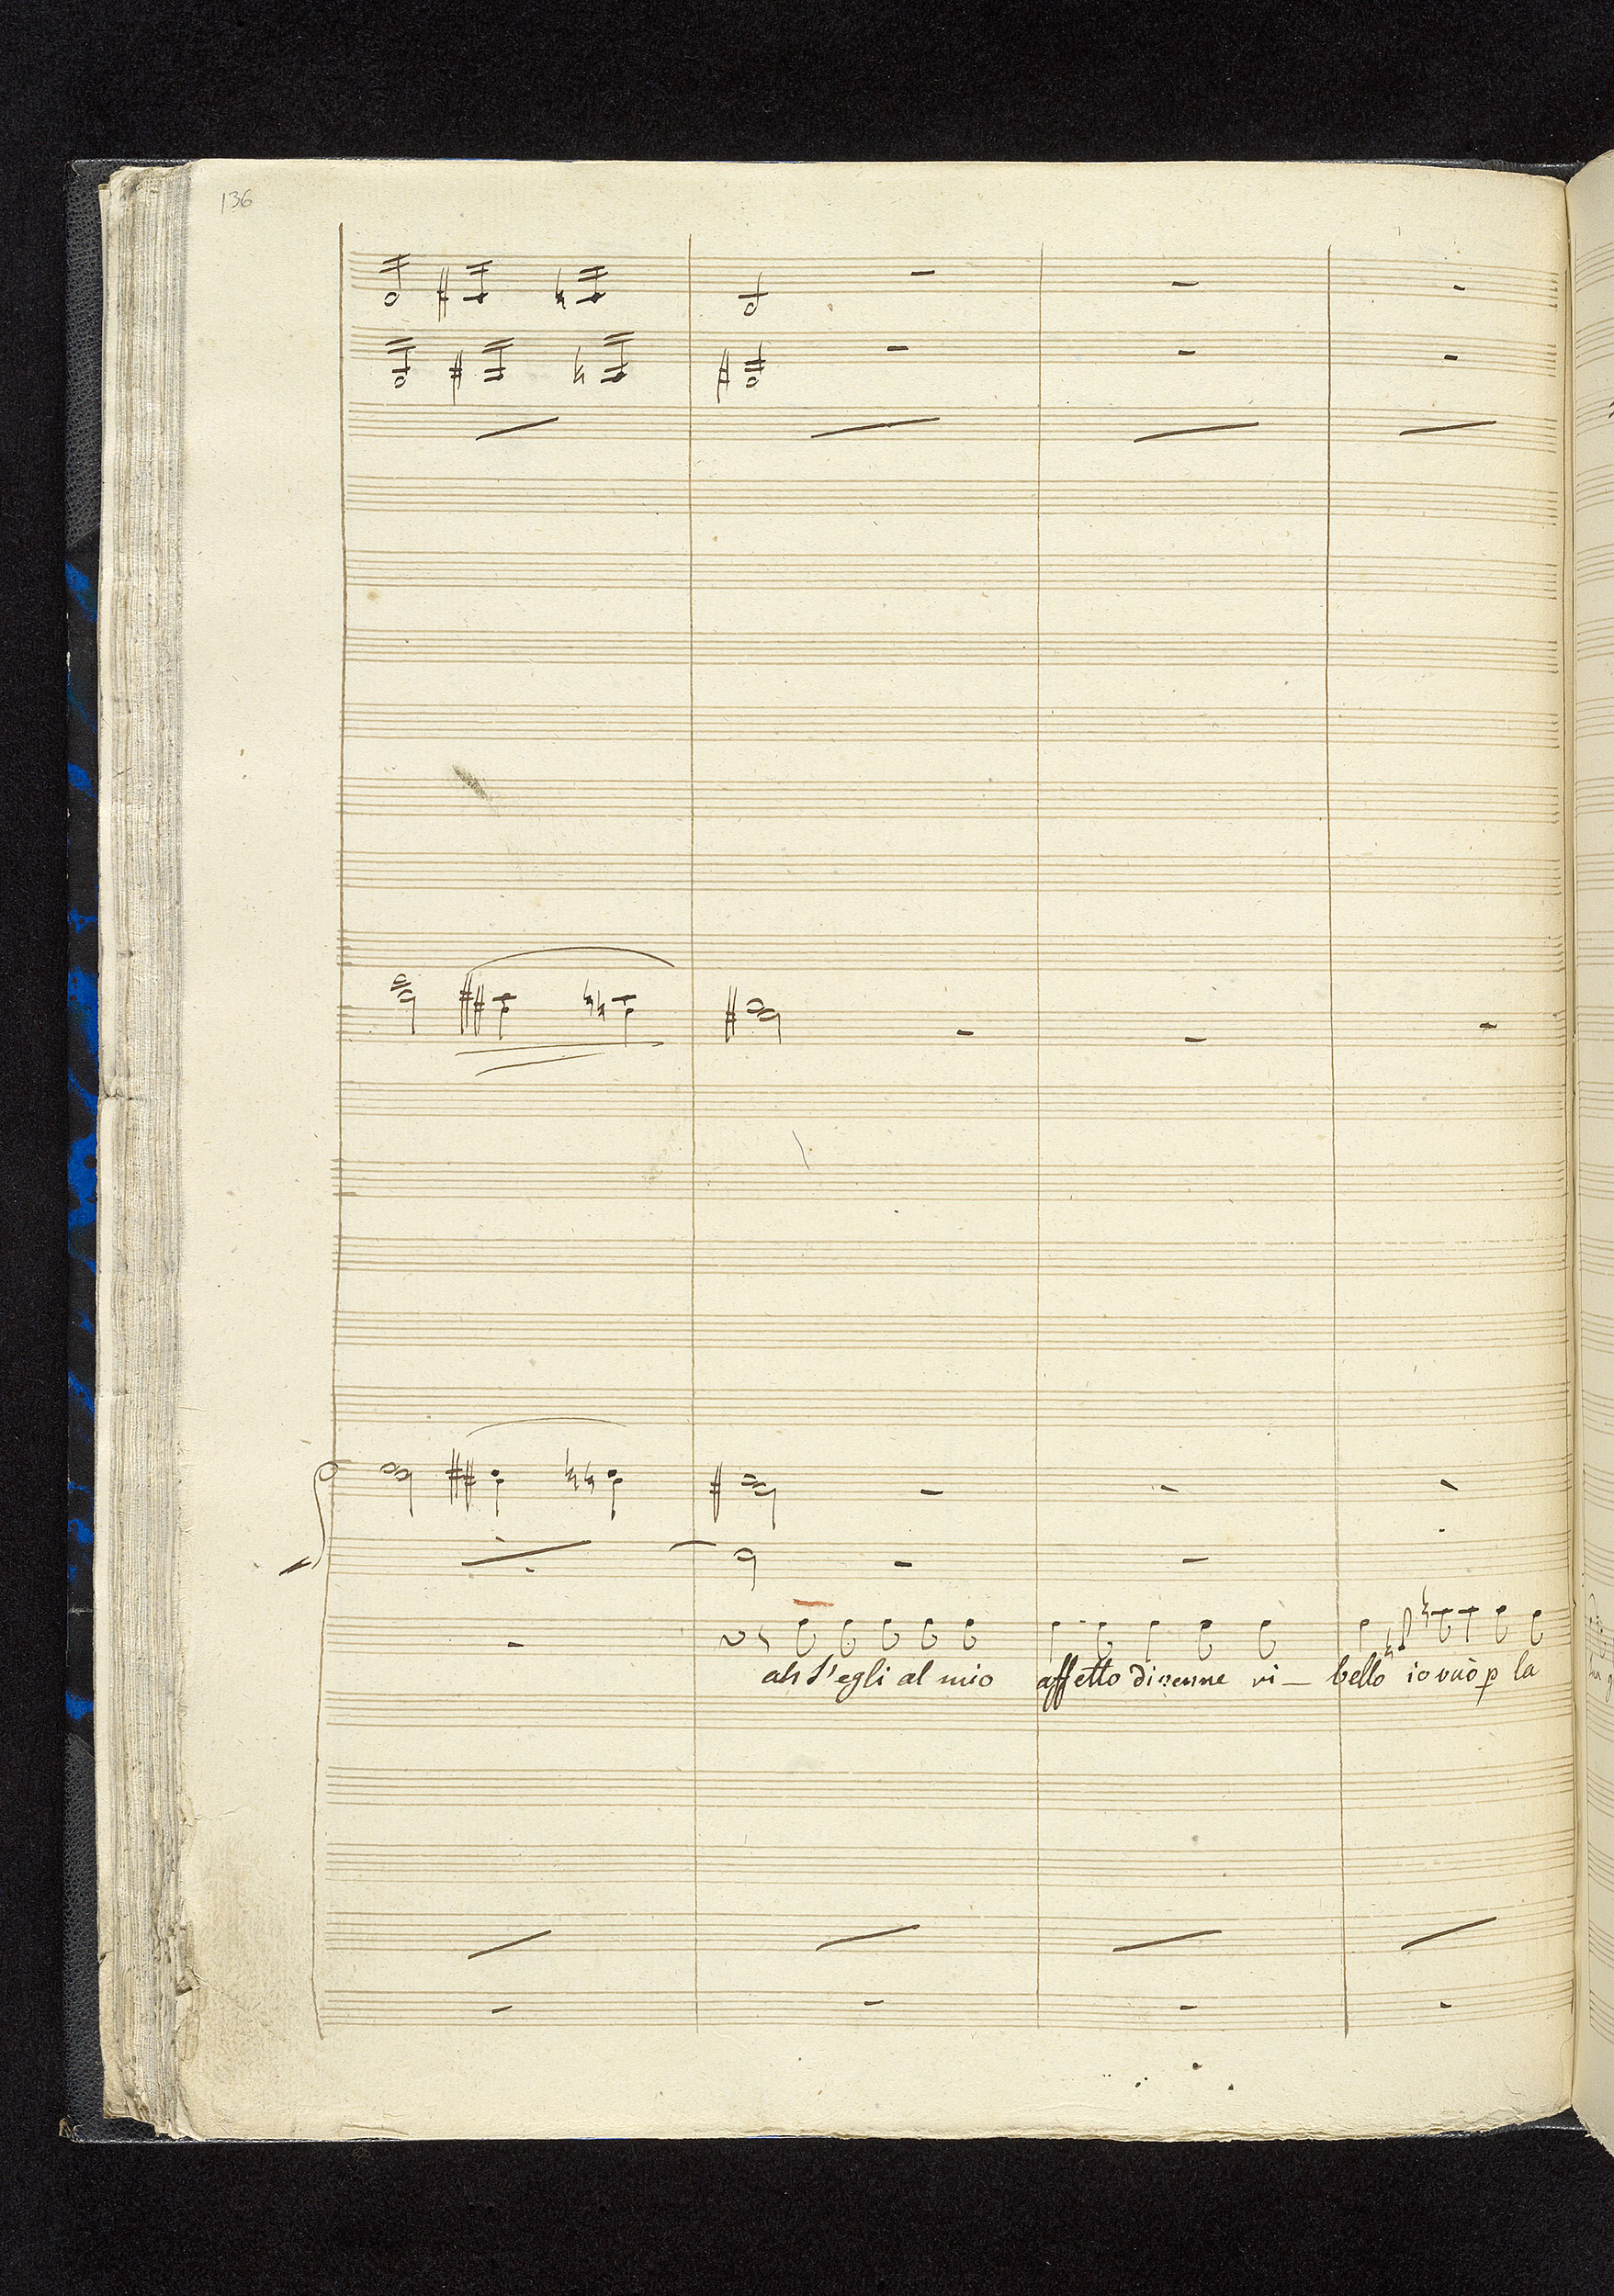 136
ah s'egli al mio affetto divenne ri_bello io vuò p la